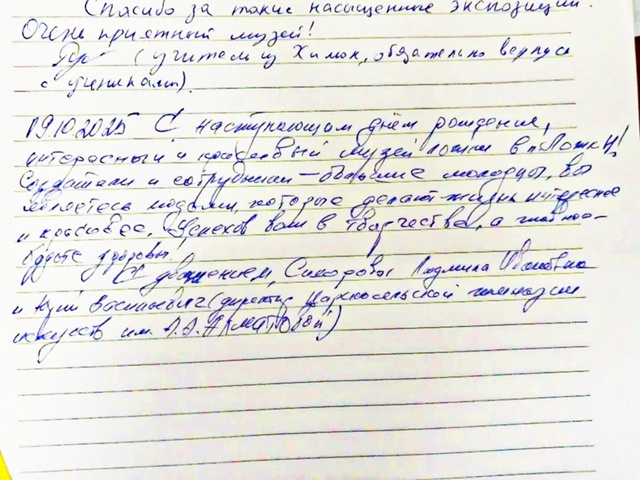 Спасибо за такие насыщенные экспозиции.
Очень приятный музей!
(учитель из Химок, обязательно вернусь
с учениками).
19.10.2025 С наступающим днём рождения,
интересный и красивый музей ложки в "Ложки"!
Создатели и сотрудники – большие молодцы, Вы
являетесь людьми, которые делают жизнь интереснее
и красивее. Успехов вам в творчестве, а главное –
будьте здоровы.
С уважением, Сидоровы Людмила Ивановна
и Юрий Васильевич (директор Царскосельской гимназии
искусств им. А.А.Ахматовой)